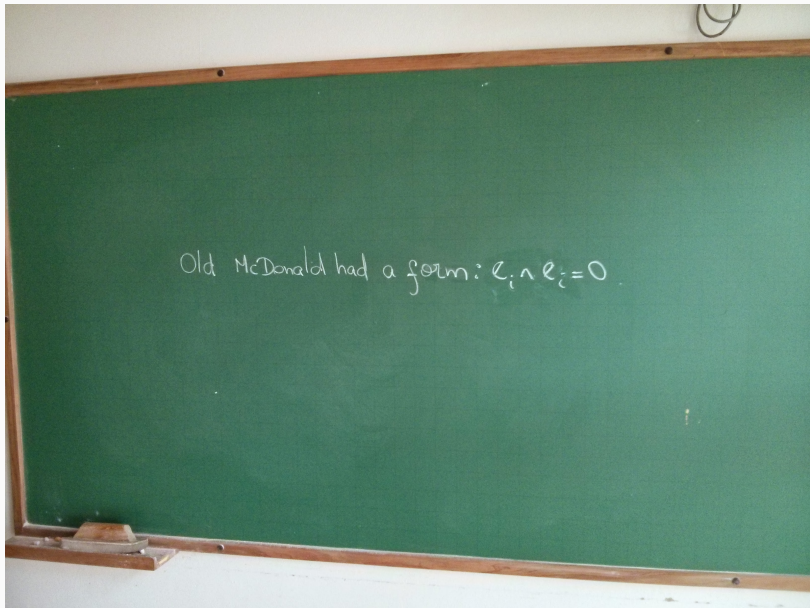 Old McDonald had a form: eᵢ ∧ eᵢ = 0